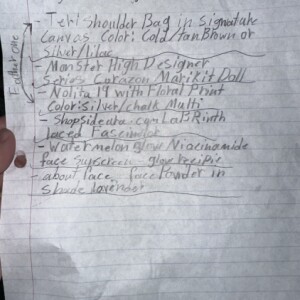 - Teri shoulder Bag in signature
canvas Color: Gold/tan Brown or
silver/lilac
- Monster High Designer
Series Corazon Marikit Doll
- Nolita 19 with Floral Print
Color: silver/chalk Multi
- Shopsidetra.com LaBRinth
laced Fascinator
- Watermelon glow Niacinamide
face sunscreen - glow recipe
- about face face Powder in
shade